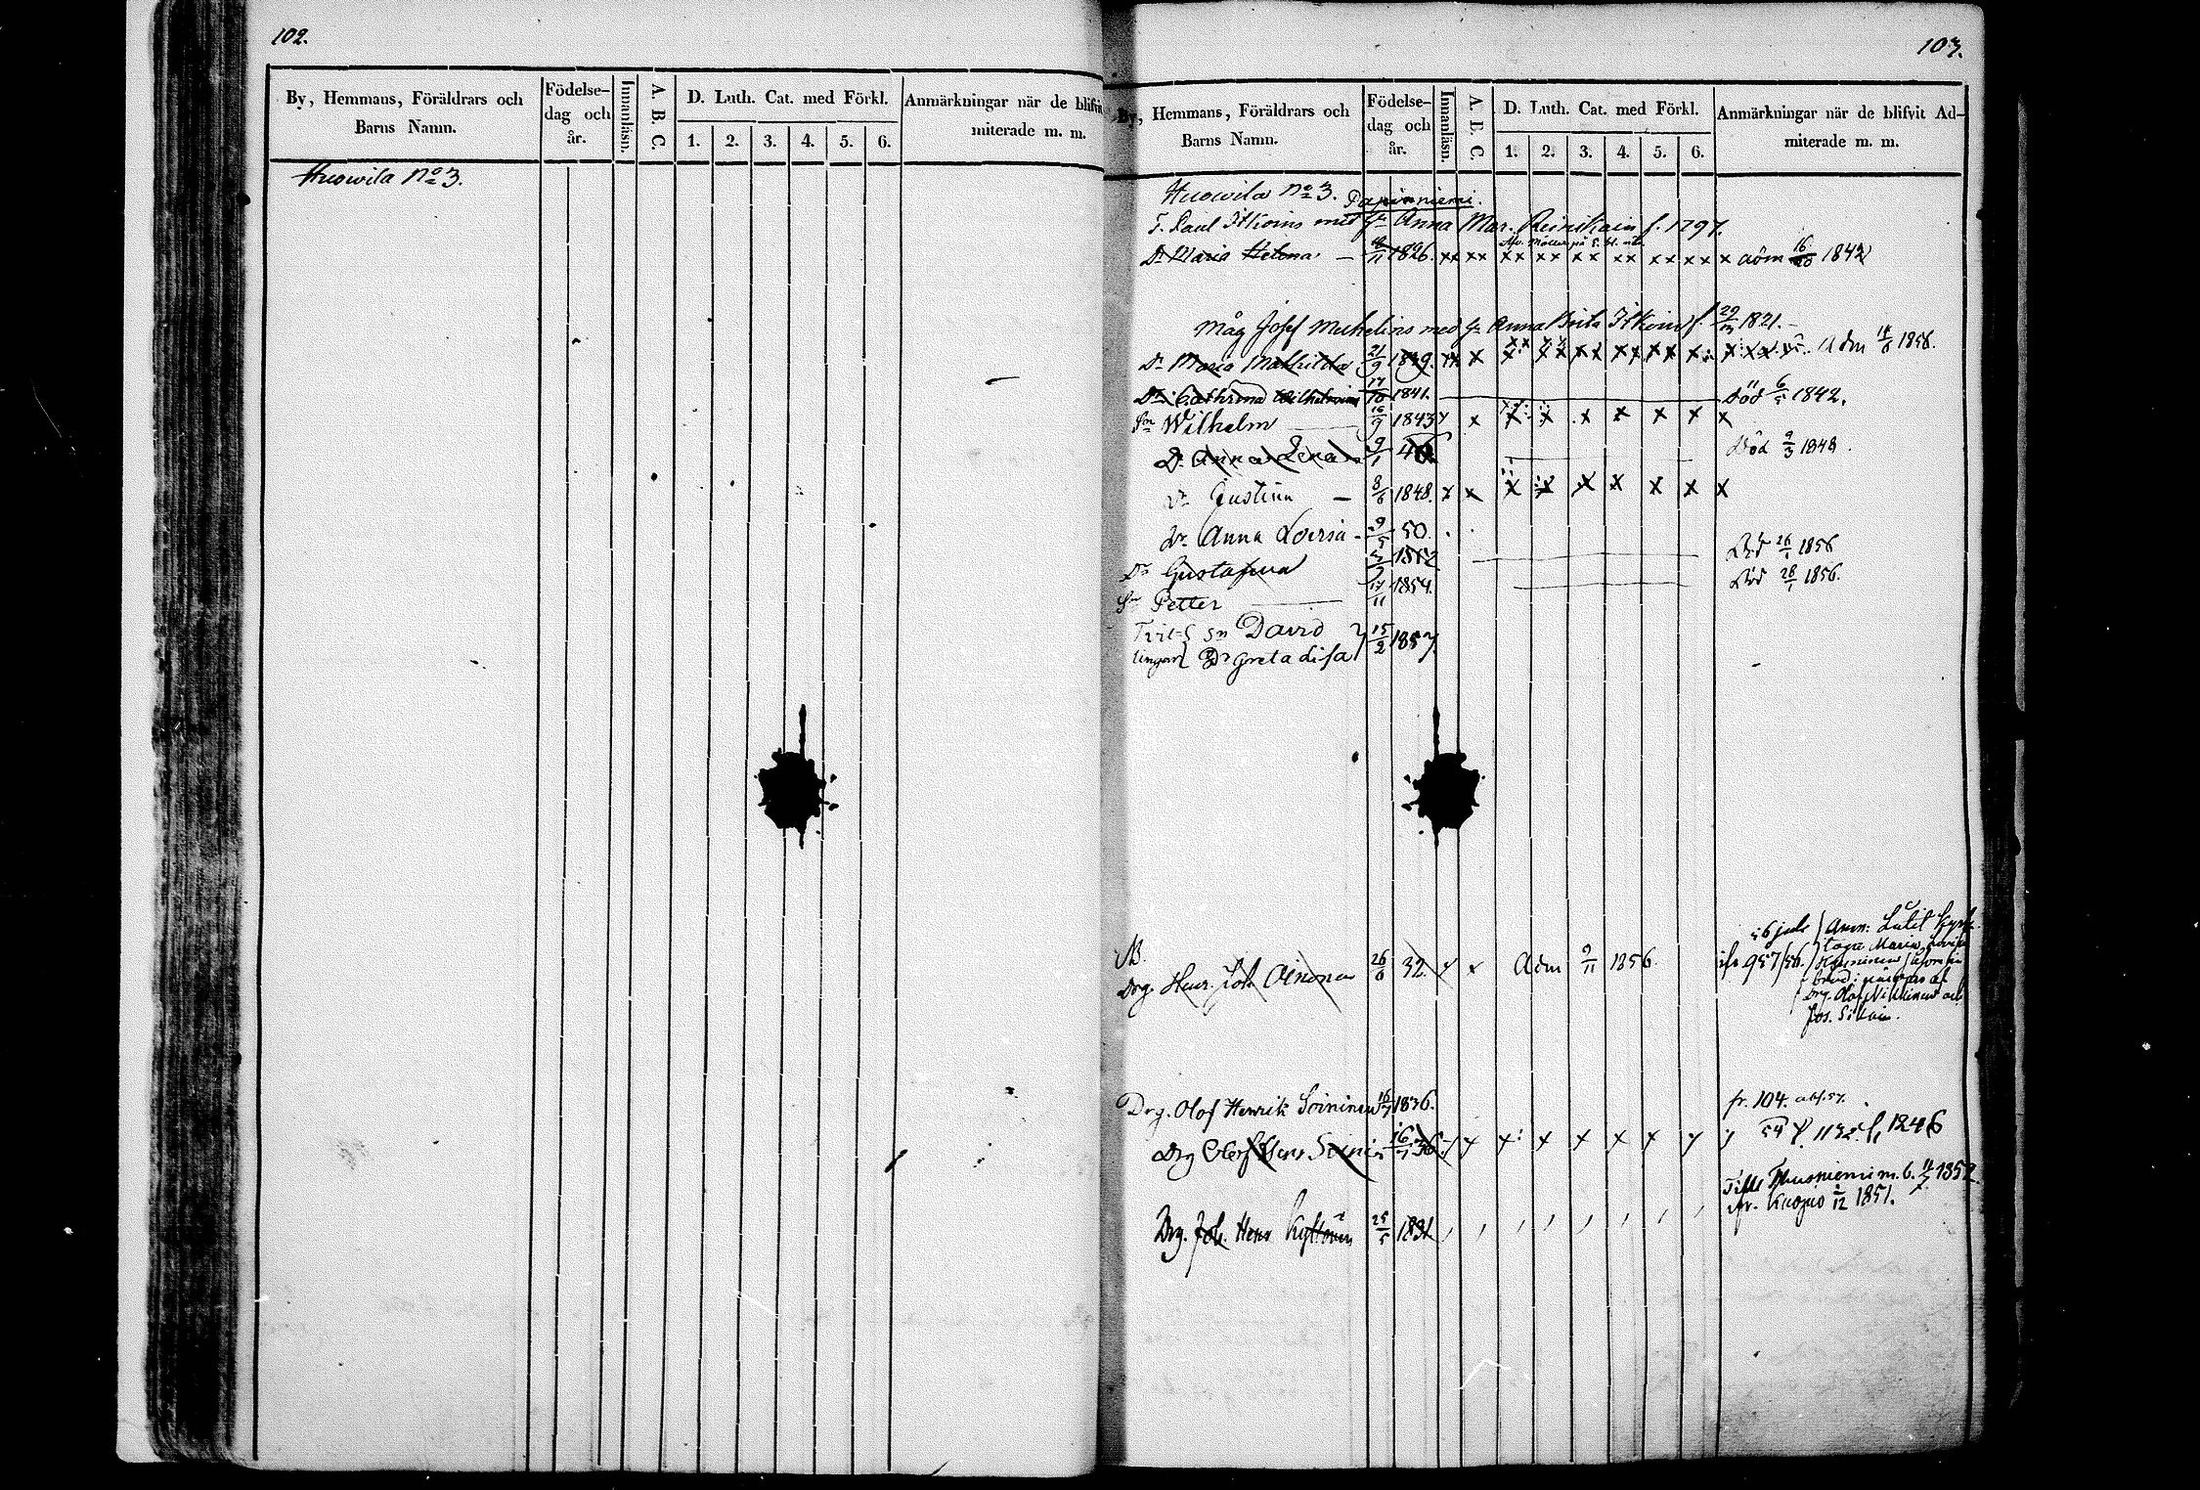 102.
By, Hemmans, Föräldrars och Barns Namn.
Födelse-dag och år.
Innanläsn.
A. B. C.
D. Luth. Cat. med Förkl.
1. 2. 3. 4. 5. 6.
Anmärkningar när de blifvit
miterade m. m.
Huowila No 3.
103.
By, Hemmans, Föräldrars och Barns Namn.
Födelse-dag och år.
Innanläsn.
A. B. C.
D. Luth. Cat. med Förkl.
1. 2. 3. 4. 5. 6.
Anmärkningar när de blifvit Ad-
miterade m. m.
Huowila No 3. Papinniemi.
T. Paul Itkoins med Hu Anna Mar. Reinikain f. 1797.
Dr Maria Helena — 18/11 1826. xx xx xx xx xx xx xx xx x adm 16/10 1842
Måg Josef Michelins med Hu Anna Brita Itkoin f. 29/3 1821.
Dr Maria Mathilda 21/9 1839. xx x x xx xx xx xx x Adm 14/6 1856.
Dr Cathrina Wilhelmina 17/10 1841. död 6/5 1842.
Sn Wilhelm 16/9 1843 x x x x x x x x x
Dr Anna Lena 9/1 46. Död 9/3 1848.
Dr Justina — 8/6 1848. x x x x x x x x x
Dr Anna Lovisa - 9/5 50.
Dr Gustafwa 1852 Död 26/1 1856
Sn Petter 17/11 1854. Död 28/1 1856.
Tvil-lingar { Sn David
Dr Greta Lisa } 15/2 1857.
NB.
Drg. Henr. Joh. Oinonen 26/6 32. x x Adm 9/11 1856.
Drg. Olof Henrik Soininen 16/7 1836. fr. 104.
Drg Olof Henr Soinin 16/7 36. x x x x x x x x x
Drg. Joh. Henr 25/5 1831
Till Tuusniemi m. b. 11/7 1852.
fr. Kuopio 12 1851.